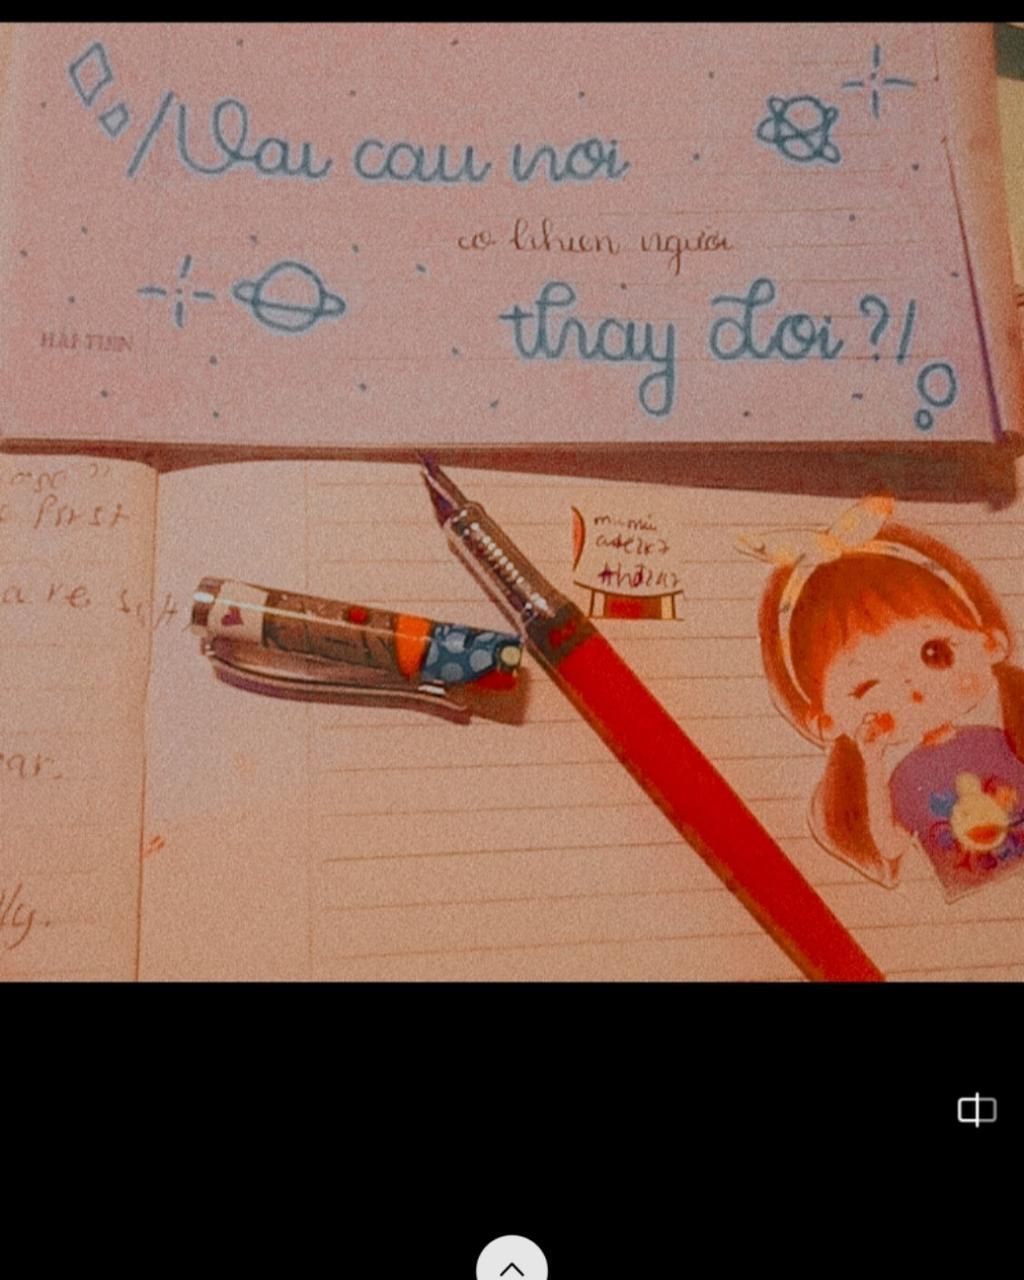 /Vai cau noi
co khien người
thay doi ?!
HẢI TIẾN
First
are
ar.
lly.